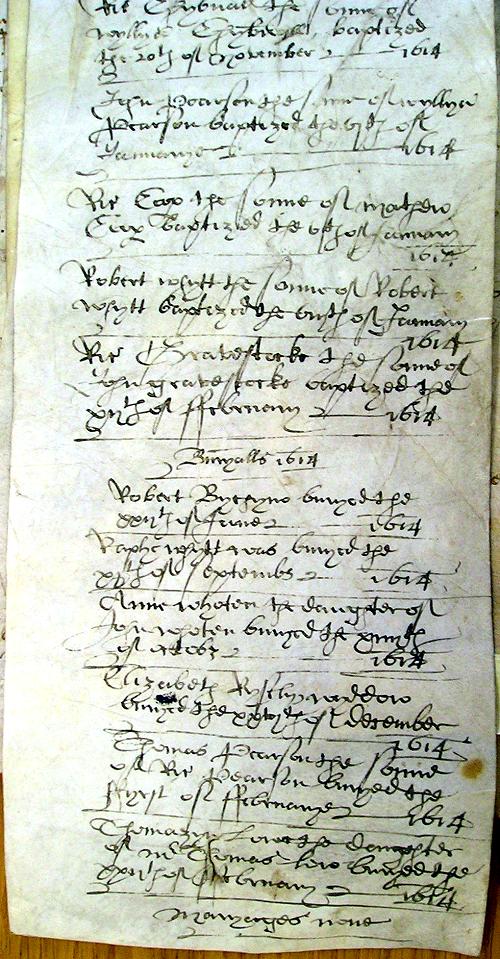 Ric the sonne of
wyllm baptized
the 20th of November 1614
John Pearson the sonne of wyllya
Pearson baptized the vith of
Januarye 1614
Ric Cox the sonne of mathew
Cox baptized the of January
1614
Robert whytt the sonne of Robert
whytt baptized the of January
1614
Ric Gratestocke the sonne of
John gratestocke baptized the
of ffebruary 1614
Buryalls 1614
Robert buryed the
of June 1614
Raphe whytt was buryed the
of Septembr 1614
Anne whoten the daughter of
John whoten buryed the
of octobr 1614
Elizabeth wyddow
buryed the of december
1614
Thomas Pearson the sonne
of Ric Pearson buryed the
fyrst of ffebruarye 1614
Thomazin Lowe the daughter
of Thomas Low buryed the
of ffebruary 1614
Maryages none